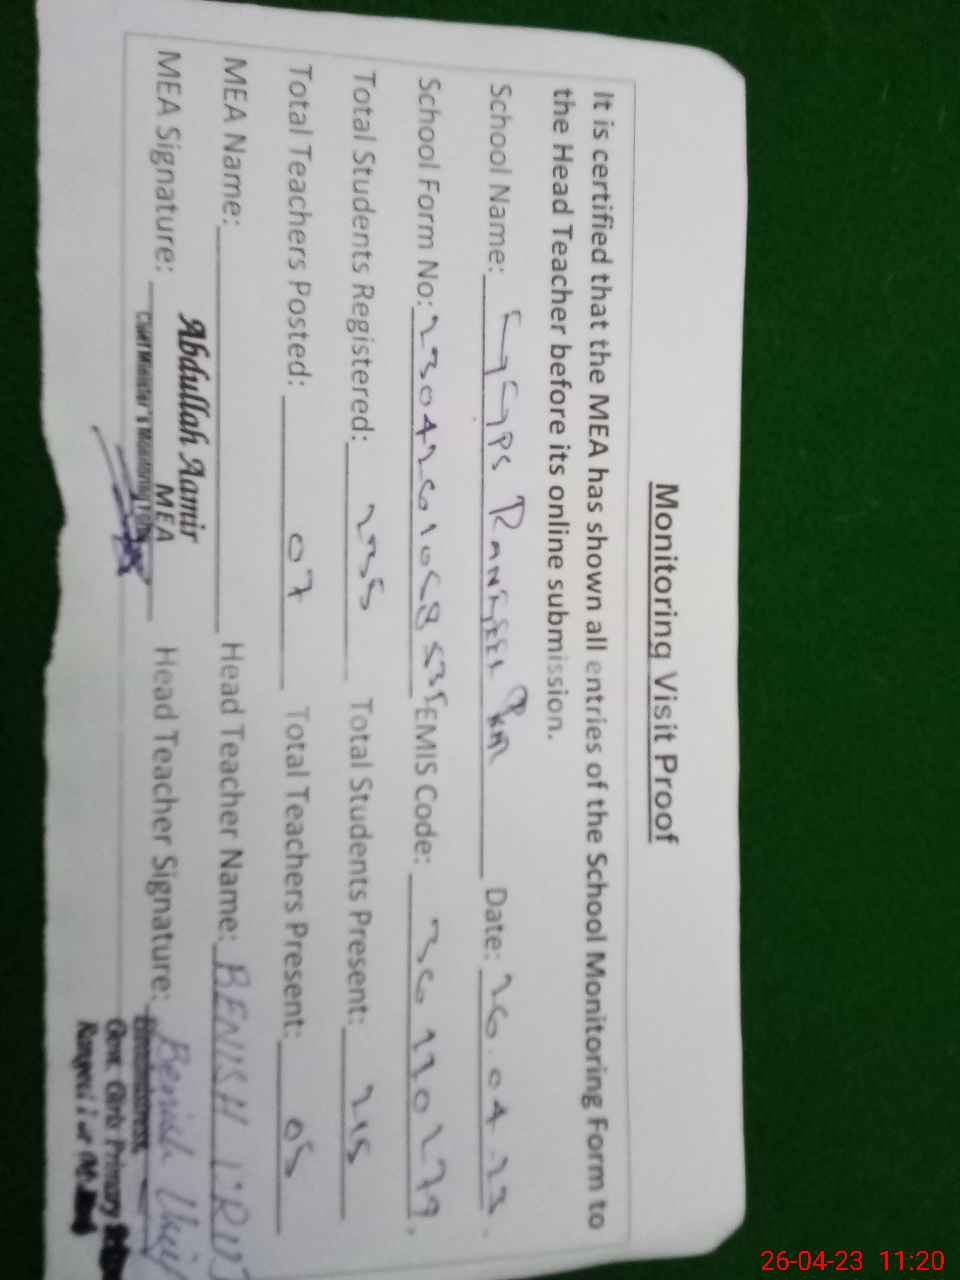 Monitoring Visit Proof
It is certified that the MEA has shown all entries of the School Monitoring Form to
the Head Teacher before its online submission.
School Name: GGPS RANGEEL PUR Date: 26.04.23.
School Form No: EMIS Code:
Total Students Registered: 235 Total Students Present: 215
Total Teachers Posted: 07 Total Teachers Present: 05
MEA Name: Head Teacher Name: BENISH
Abdullah Aamir
MEA
MEA Signature: Head Teacher Signature: Benish
Chief Minister's Monitoring Force
Headmistress
Govt. Girls Primary
26-04-23 11:20